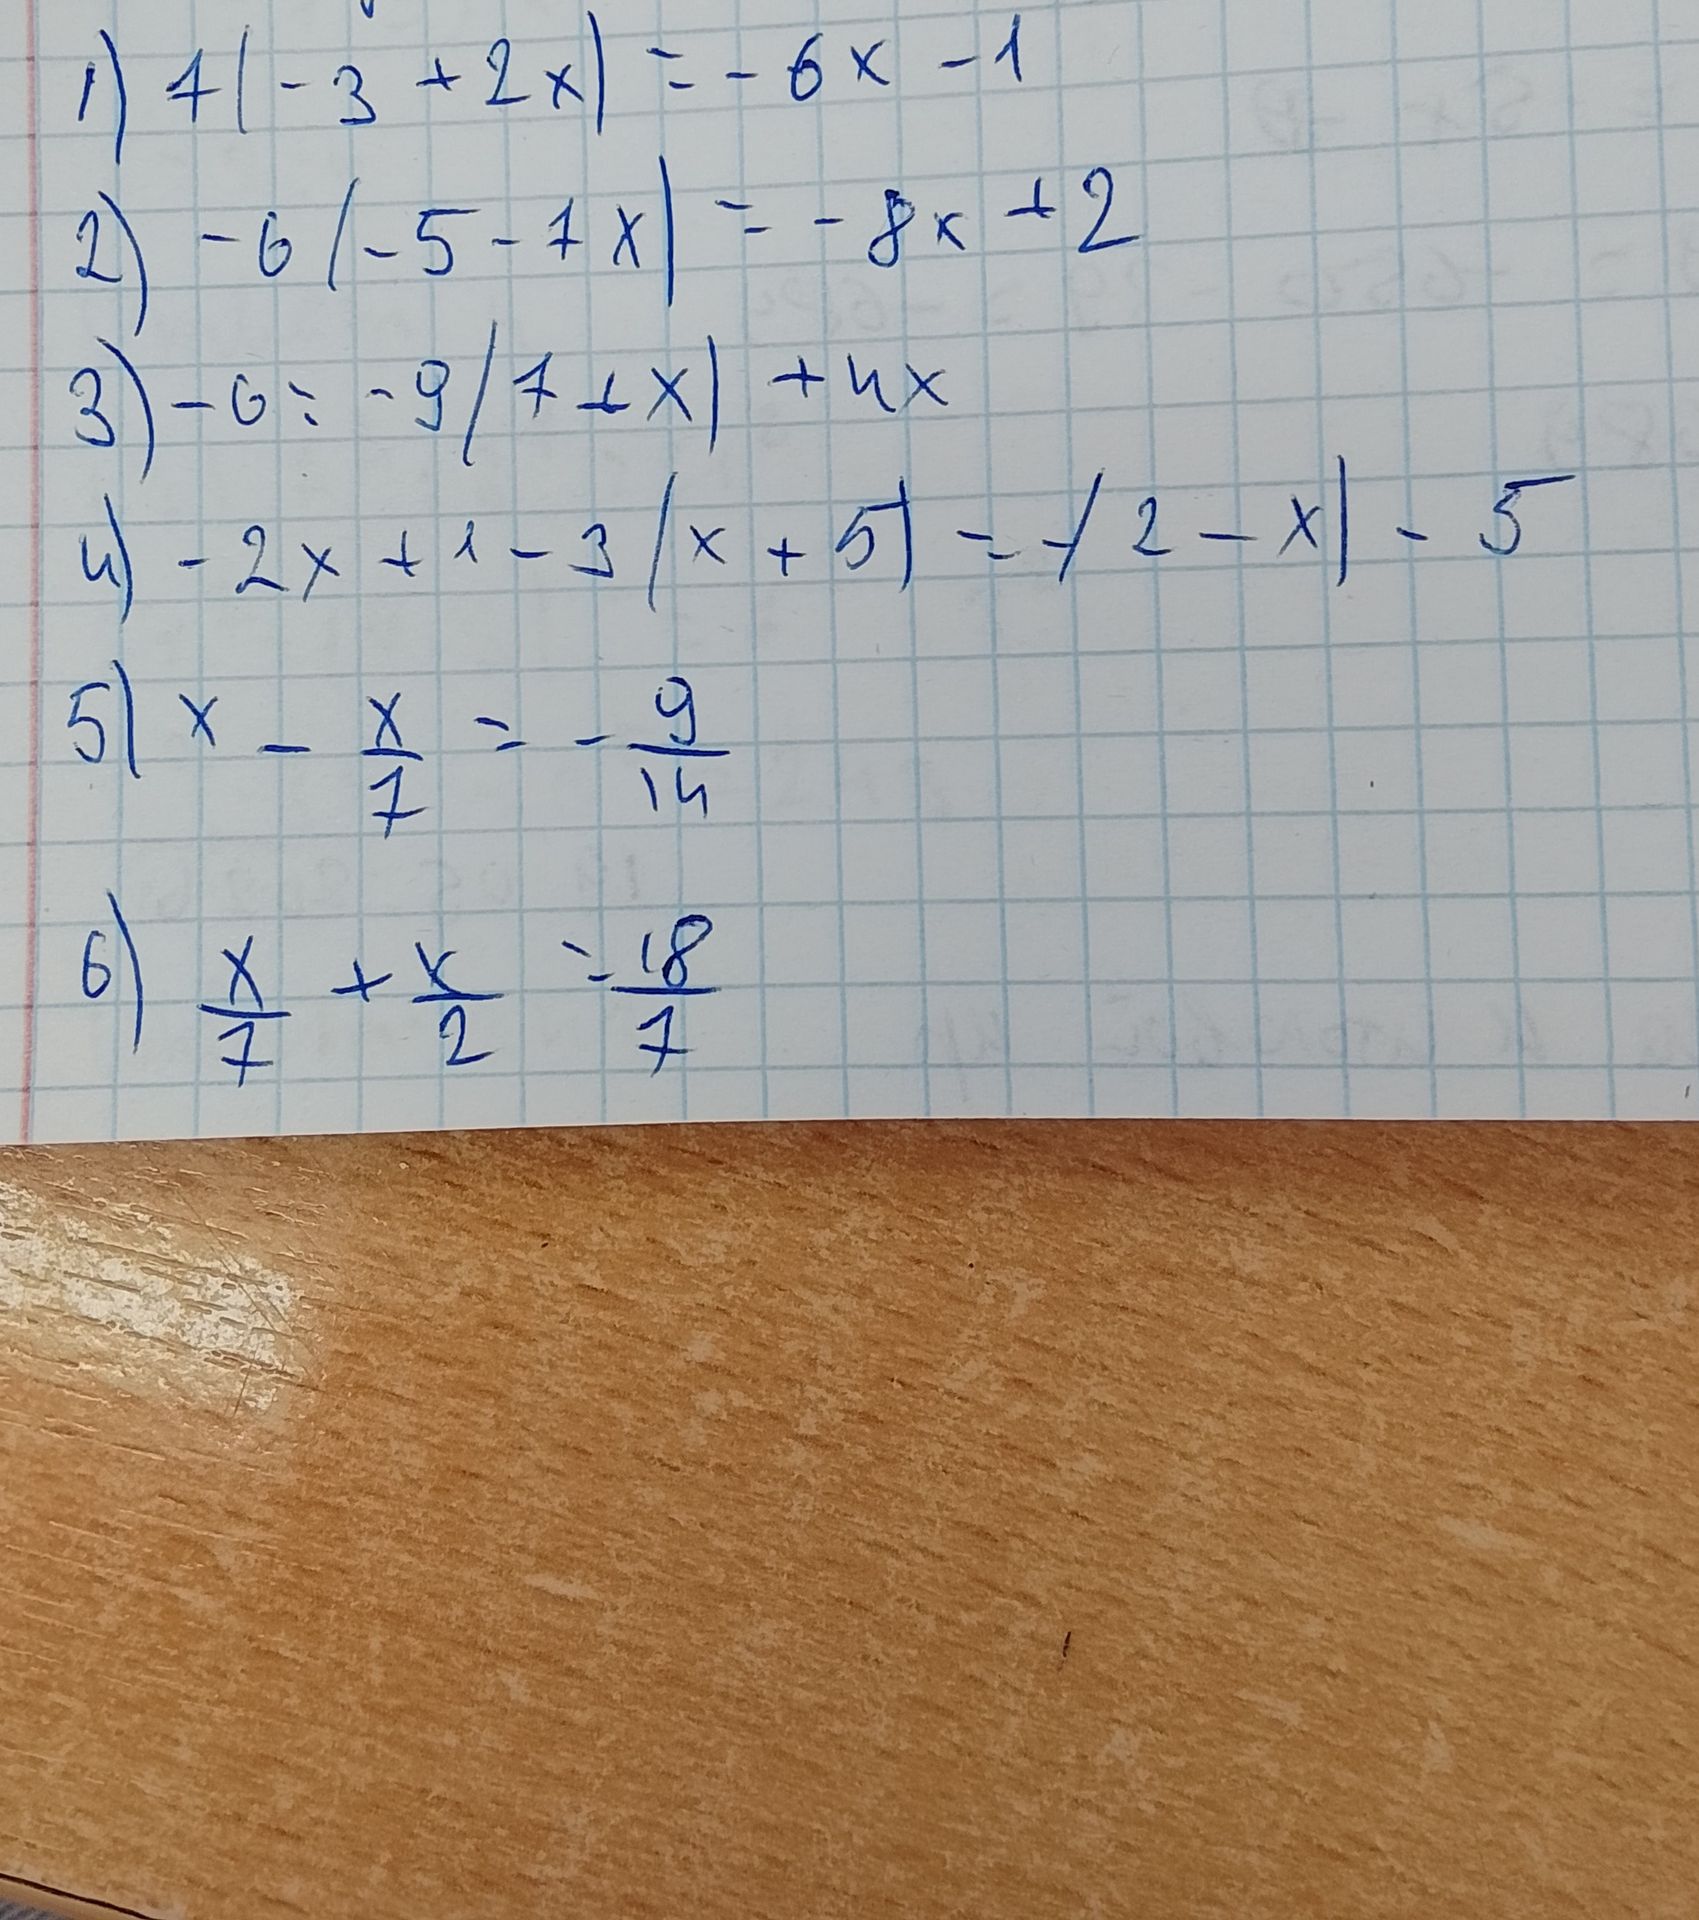 1) 7(-3+2x)=-6x-1
2) -6(-5-7x)=-8x+2
3) -6=-9(7+x)+4x
4) -2x+1-3(x+5)=-(2-x)-5
5) x - x/7 = - 9/14
6) x/7 + x/2 = 18/7